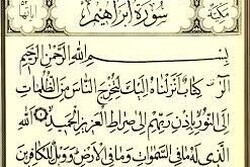 سورة ابراهيم
بِسْمِ اللَّهِ الرَّحْمَٰنِ الرَّحِيمِ
الر كِتَابٌ أَنْزَلْنَاهُ إِلَيْكَ لِتُخْرِجَ النَّاسَ مِنَ الظُّلُمَاتِ
إِلَى النُّورِ بِإِذْنِ رَبِّهِمْ إِلَىٰ صِرَاطِ الْعَزِيزِ الْحَمِيدِ اللَّهِ
الَّذِي لَهُ مَا فِي السَّمٰوَاتِ وَمَا فِي الْأَرْضِ وَوَيْلٌ لِلْكَافِرِينَ